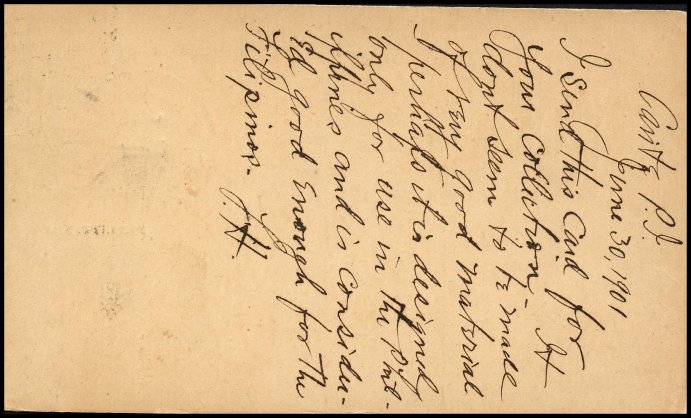 Cavite P.I.
June 30, 1901
I send this Card for
your Collection It
dont seem to be made
of very good material
perhaps it is designed
only for use in the Phil-
ippines and is consider-
ed good enough for the
Filipinos.
J.H.